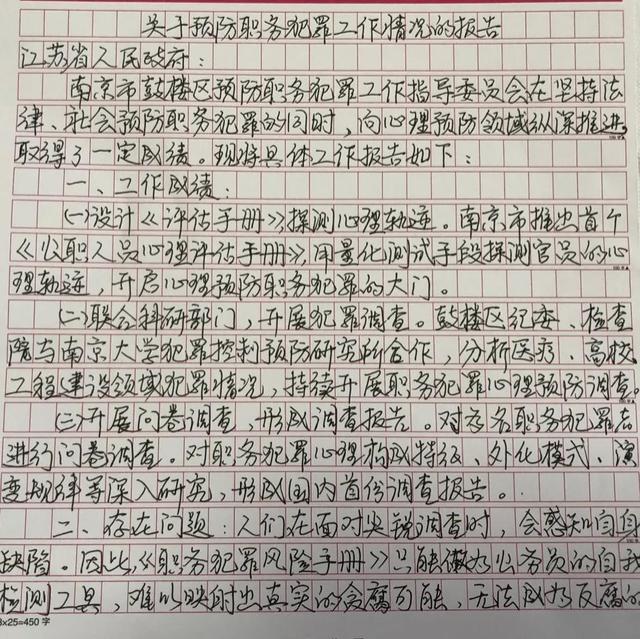 关于预防职务犯罪工作情况的报告
江苏省人民政府：
南京市鼓楼区预防职务犯罪工作指导委员会在坚持法
律、社会预防职务犯罪的同时，向心理预防领域纵深推进，
取得了一定成绩。现将具体工作报告如下：
一、工作成绩：
㈠设计《评估手册》，探测心理轨迹。南京市推出首个
《公职人员心理评估手册》，用量化测试手段探测官员的心
理轨迹，开启心理预防职务犯罪的大门。
㈡联合科研部门，开展犯罪调查。鼓楼区纪委、检查
院与南京大学犯罪控制预防研究所合作，分析医疗、高校、
工程建设领域犯罪情况，持续开展职务犯罪心理预防调查。
㈢开展问卷调查，形成调查报告。对多名职务犯罪者
进行问卷调查。对职务犯罪心理构成特征、外化模式、演
变规律等深入研究，形成国内首份调查报告。
二、存在问题：人们在面对尖锐调查时，会感知自身
缺陷。因此，《职务犯罪风险手册》只能做为公务员的自我
检测工具，难以映射出真实的贪腐可能，无法成为反腐的
8x25=450字